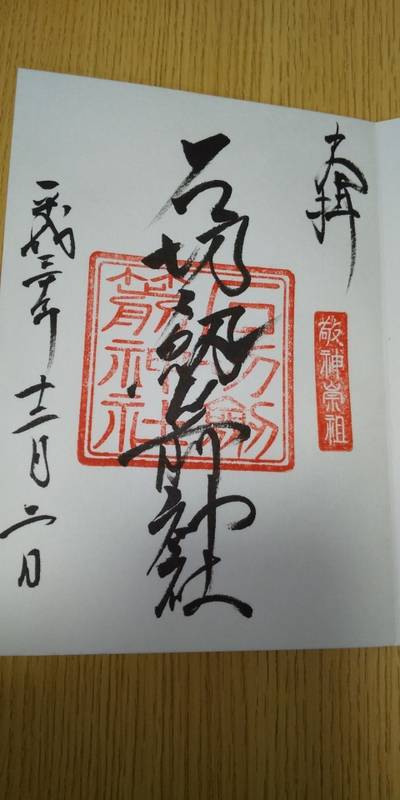 奉拝
敬神崇祖
石切劔箭神社
石切劔
箭神社
平成三十年十二月二日